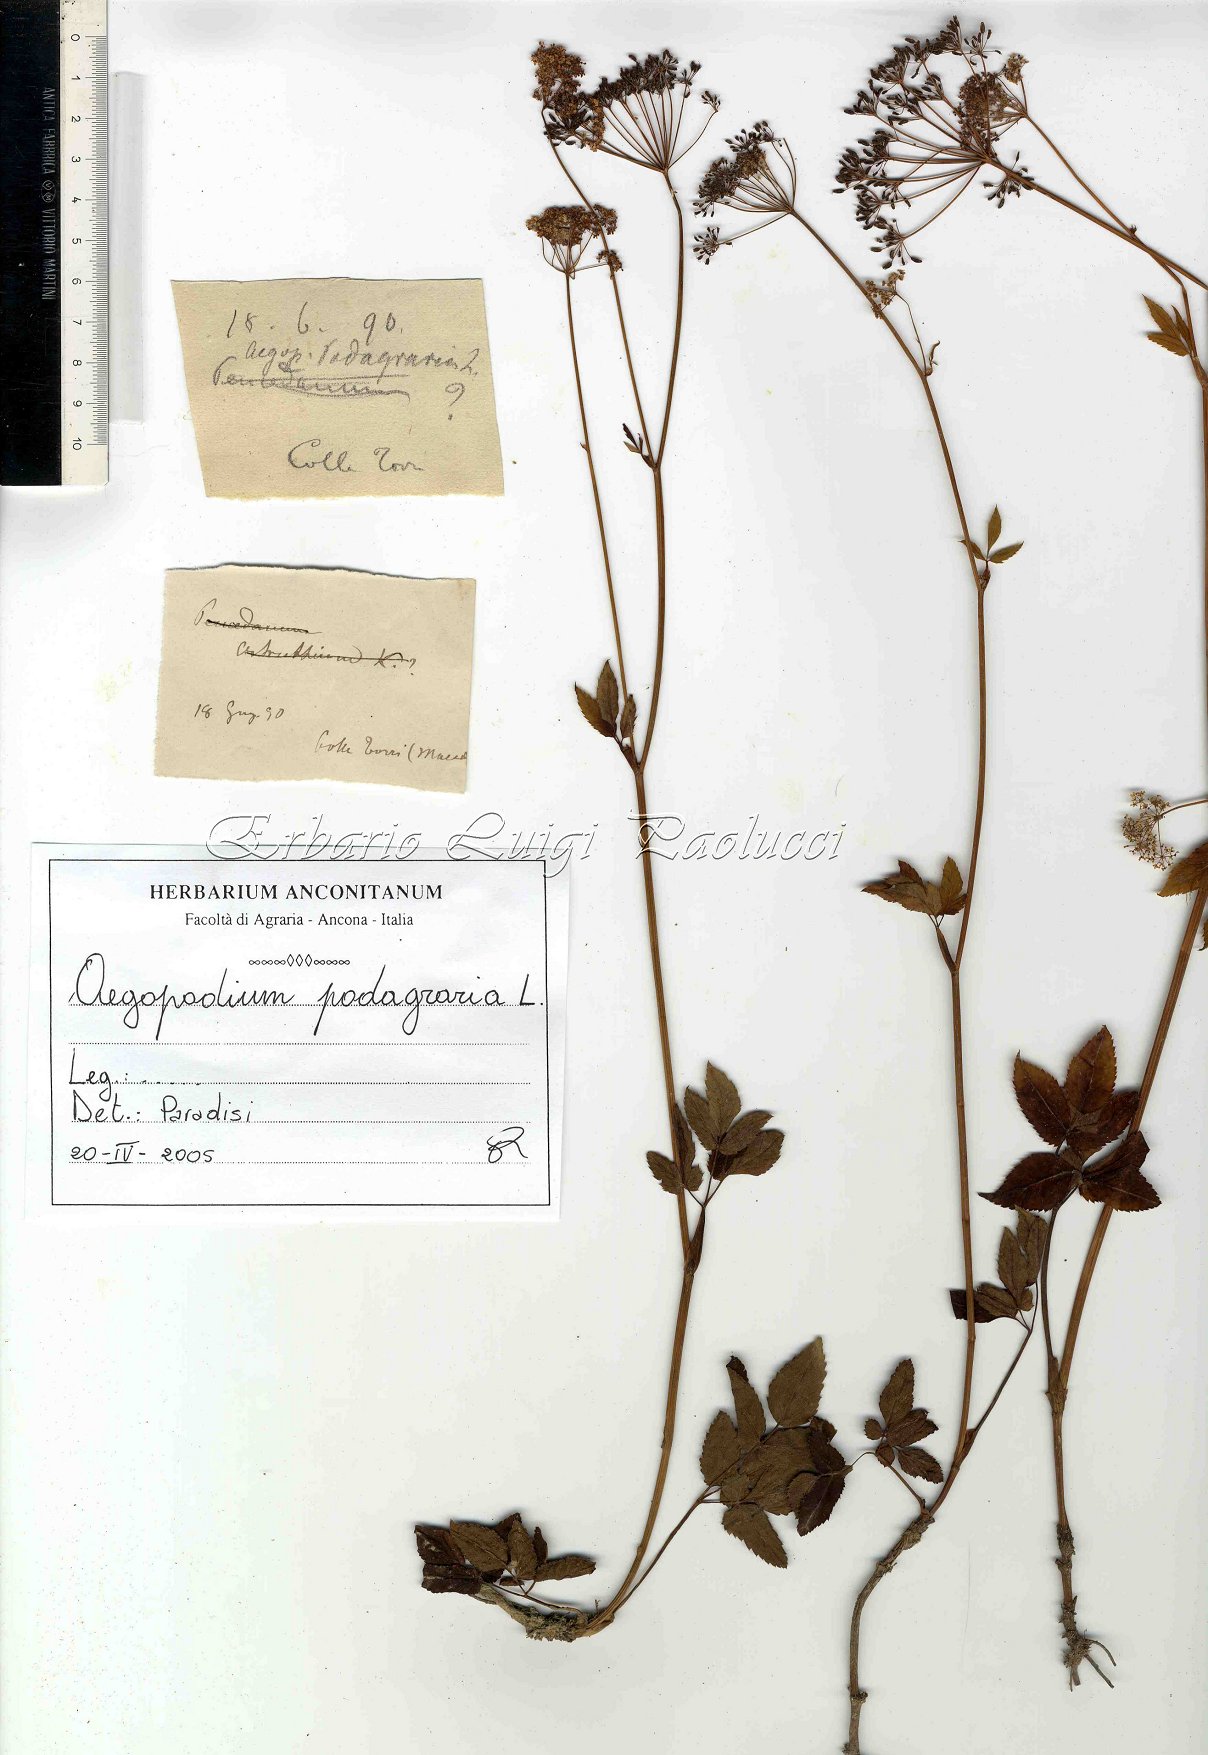 0
1
2
3
4
5
6
7
8
9
10
ANTICA FABBRICA VITTORIO MARTINI
18. 6. 90.
Aegop. Podagraria L.
Peucedanum ?
Colle Torri
Peucedanum
Ostruthium K. ?
18 Giug. 90
Colle Torri (Maced
Erbario Luigi Paolucci
HERBARIUM ANCONITANUM
Facoltà di Agraria - Ancona - Italia
Aegopodium podagraria L.
Leg.: .....
Det.: Paradisi
20-IV-2005